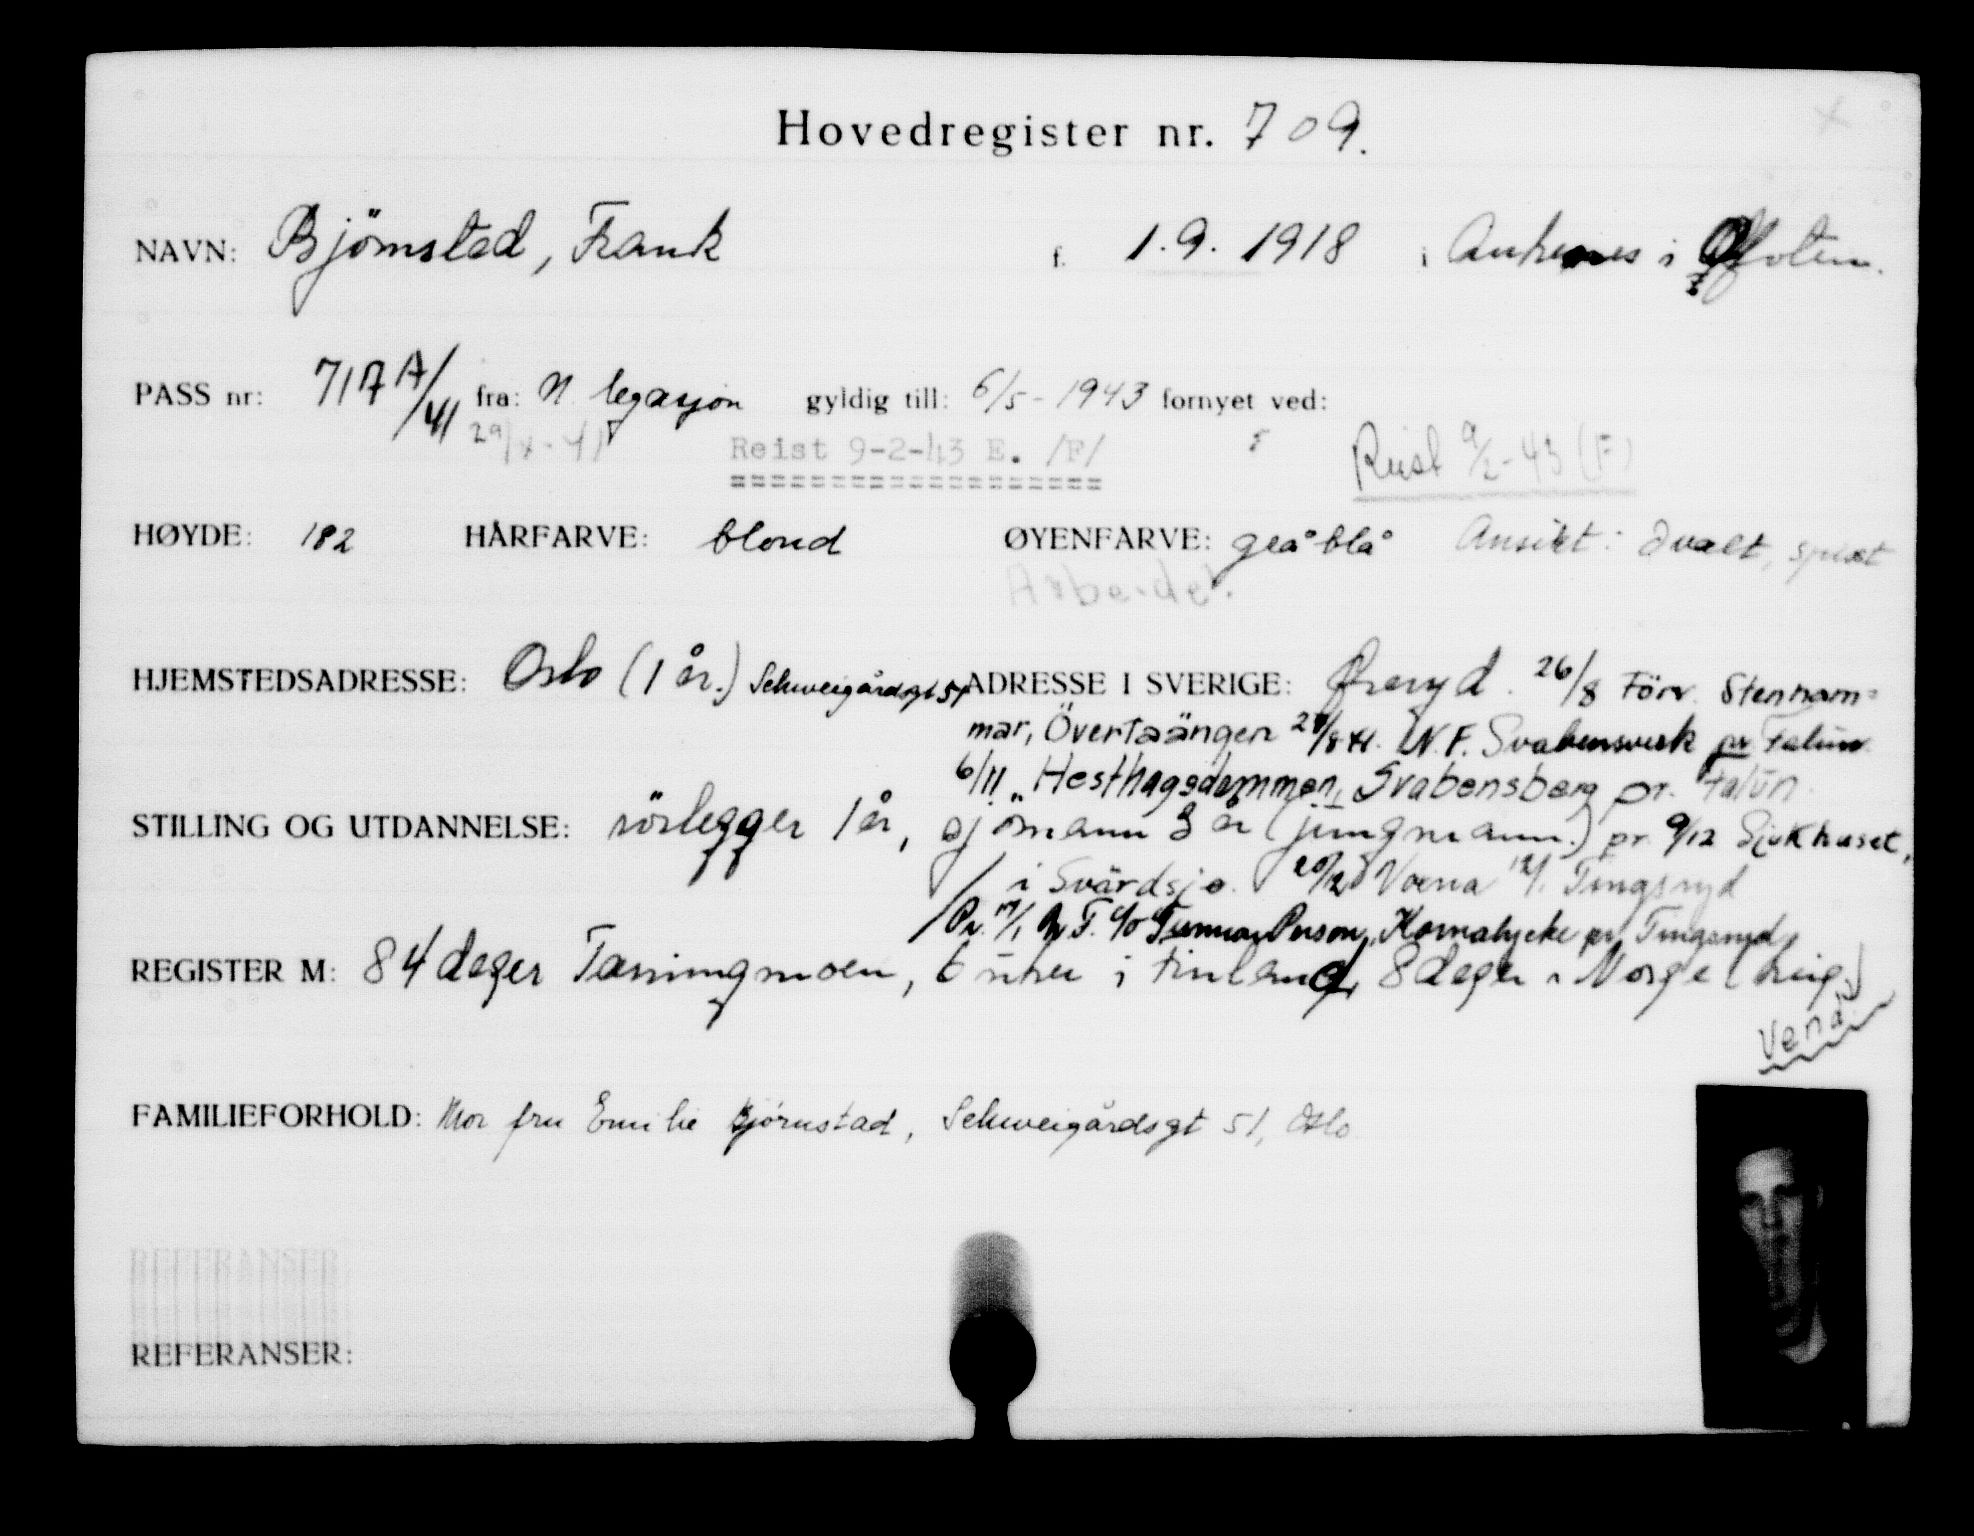 Hovedregister nr. 709.
NAVN: Björnstad, Frank f. 1.9. 1918 i Ankenes i Ofoten.
PASS nr: 717 A/41 fra: N legasjon gyldig till: 6/5-1943 fornyet ved:
Reist 9-2-43 E. /F/ Reist 9/2-43 (F)
==================
HØYDE: 182 HÅRFARVE: blond ØYENFARVE: gråblå Ansikt: ovalt,
Arbeidet.
HJEMSTEDSADRESSE: Oslo (1 år.) Schweigårdsgt 51 ADRESSE I SVERIGE: Øreryd. 26/8 Förv. Stenham=
mar, N.F. Svabensverk pr Falun
6/11 Hesthagsdammen, Svabensberg pr. Falun.
STILLING OG UTDANNELSE: rörlegger 1 år, sjömann 3 år (jungmann.) pr. 9/12 Sjukhuset,
i Svärdsjø. Voxna Tingsryd
N.F. c/o Gunnar Person, Kornalycke pr Tingsryd
REGISTER M: 84 dager Terningmoen, 6 uker i Finland, 8 dager i Norge (krig.)
Vend!
FAMILIEFORHOLD: Mor fru Emilie Bjørnstad, Schweigårdsgt 51, Oslo
REFERANSER: